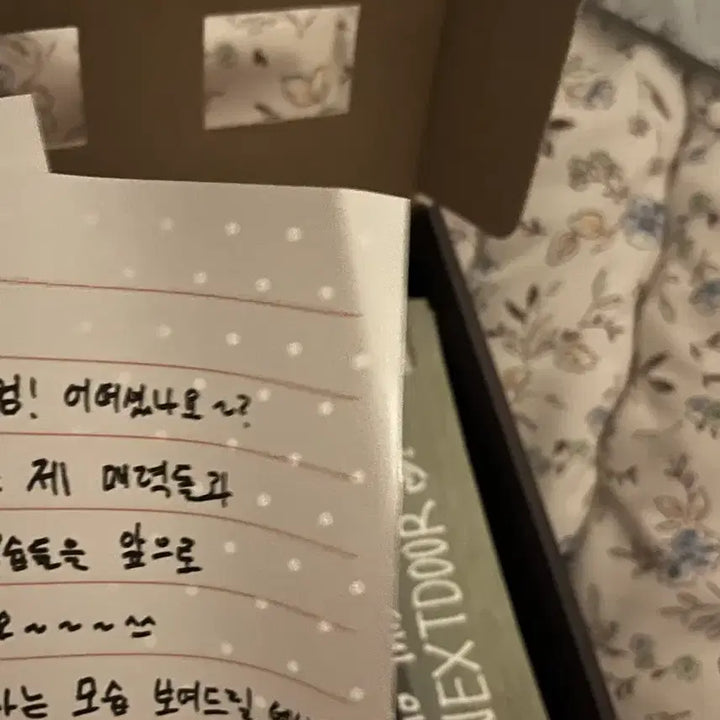 범! 어떠셨나요~?
제 매력들과
습들을 앞으로
요~~~~
는 모습 보여드릴
NEXTDOOR